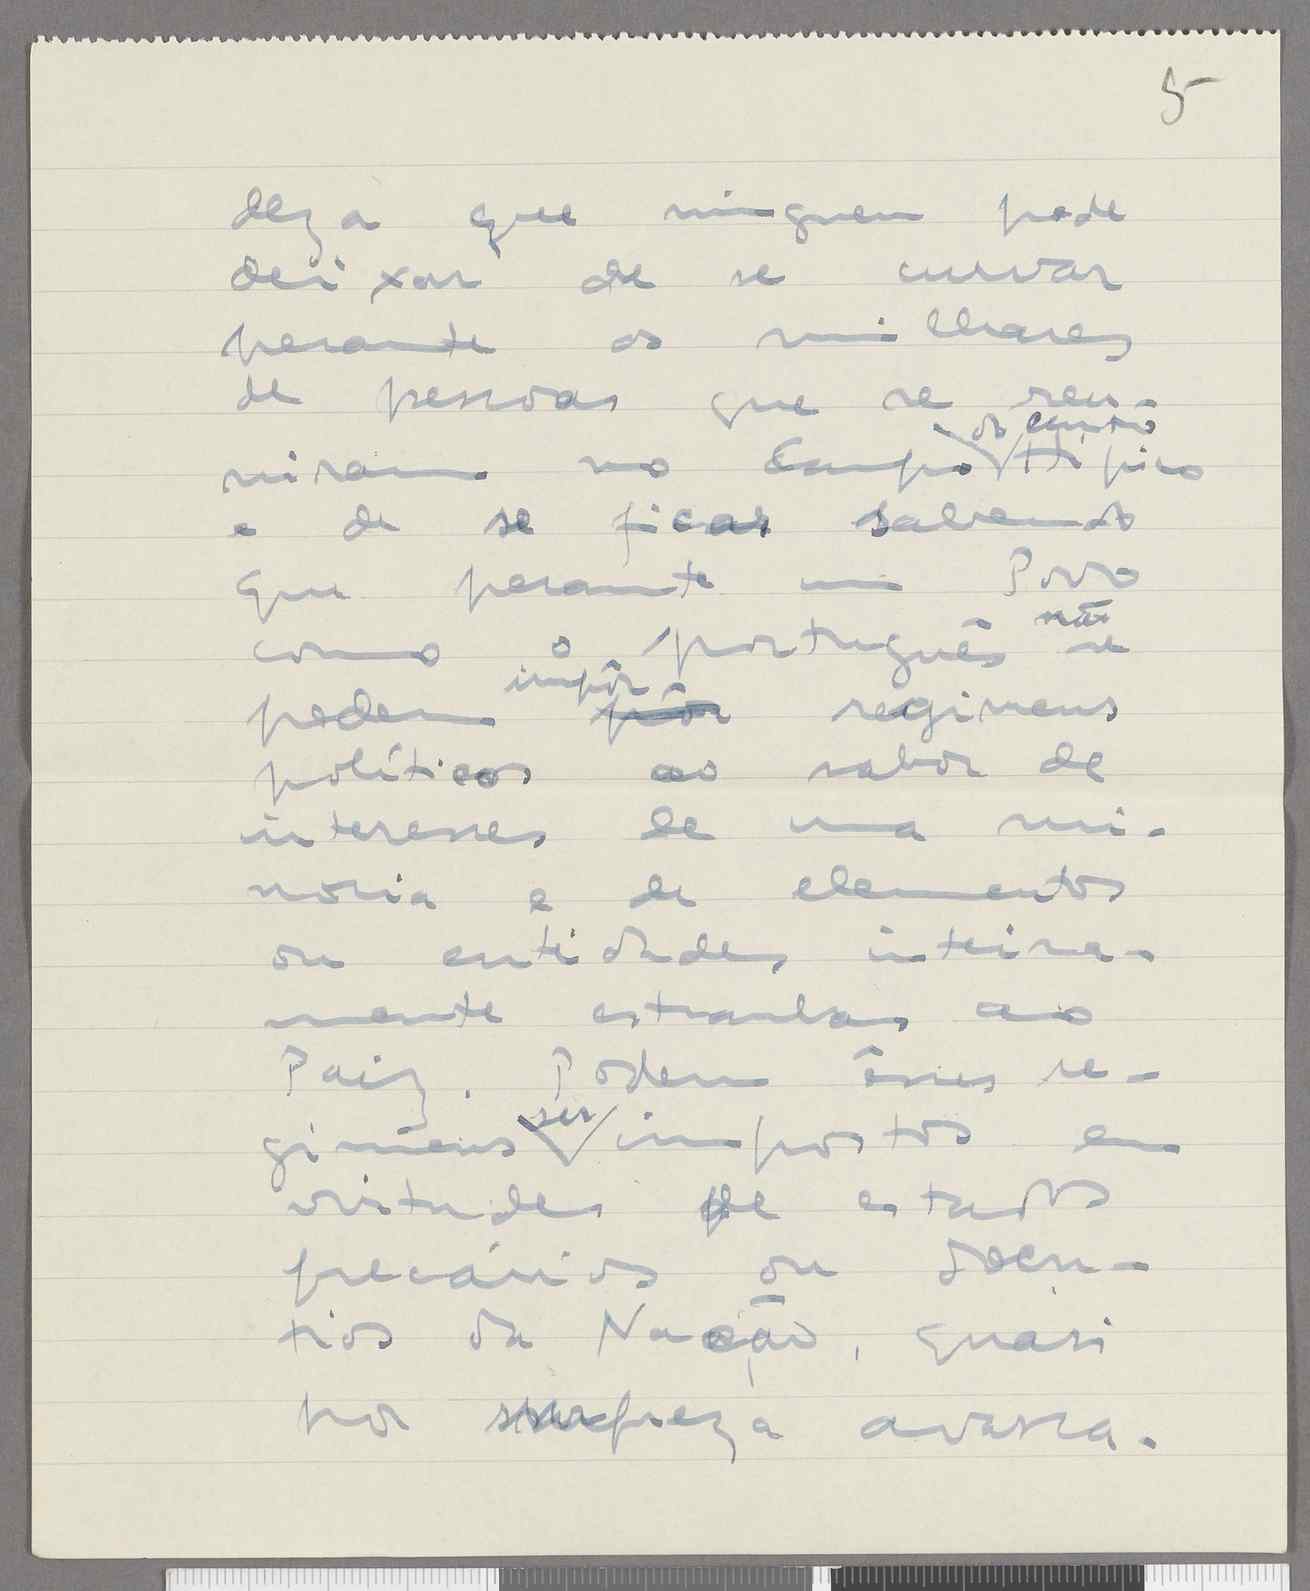 5
deza que ninguem pode
deixar de se curvar
perante os milhares
de pessoas que se reu-
niram no Campo do centro Hipico
e de se ficar sabendo
que perante um Povo
como o português não se
podem impôr pôr regimens
políticos ao sabor de
interesses de uma mi-
noria e de elementos
ou entidades inteira-
mente estranhas ao
Paiz. Podem êsses re-
gimens ser impostos em
virtudes de estados
precários ou doen-
tios da Nação, quasi
por surpreza avassa-